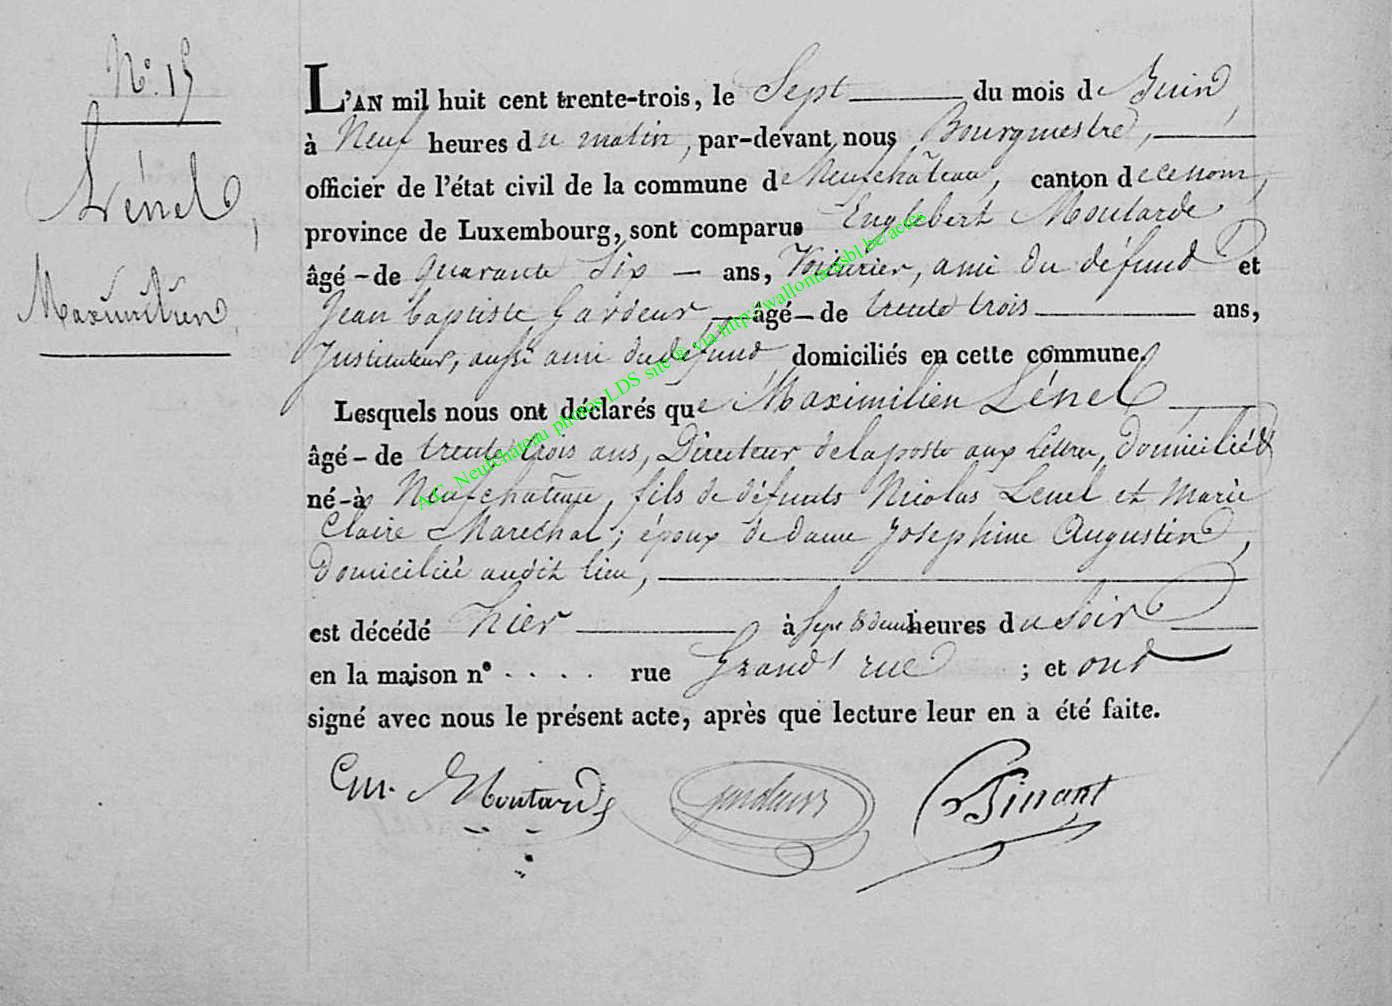 N° 15
Lénel,
Maximilien,
L'AN mil huit cent trente-trois, le Sept du mois de Juin,
à Neuf heures du matin, par-devant nous Bourgmestre,
officier de l'état civil de la commune de Neufchâteau, canton de ce nom,
province de Luxembourg, sont comparus Englebert Moutarde
âgé - de quarante six - ans, Voiturier, ami du défund et
Jean baptiste Gardeur, - âgé - de trente trois ans,
Instituteur, aussi ami du défund domiciliés en cette commune.
Lesquels nous ont déclarés que Maximilien Lénel
âgé - de trente trois ans, Directeur de la poste aux lettres, domicilié &
né - à Neufchateau, fils de défunts Nicolas Lenel et Marie
Claire Marechal; époux de dame Josephine Augustin,
Domiciliée audit lieu,
est décédé hier à Sept & demi heures du soir
en la maison n° . . . . rue Grand' rue ; et ont
signé avec nous le présent acte, après que lecture leur en a été faite.
Moutarde Gardeur Pinant
A.C. Neufchateau photos LDS site © via http://wallonia-asbl.be/actes